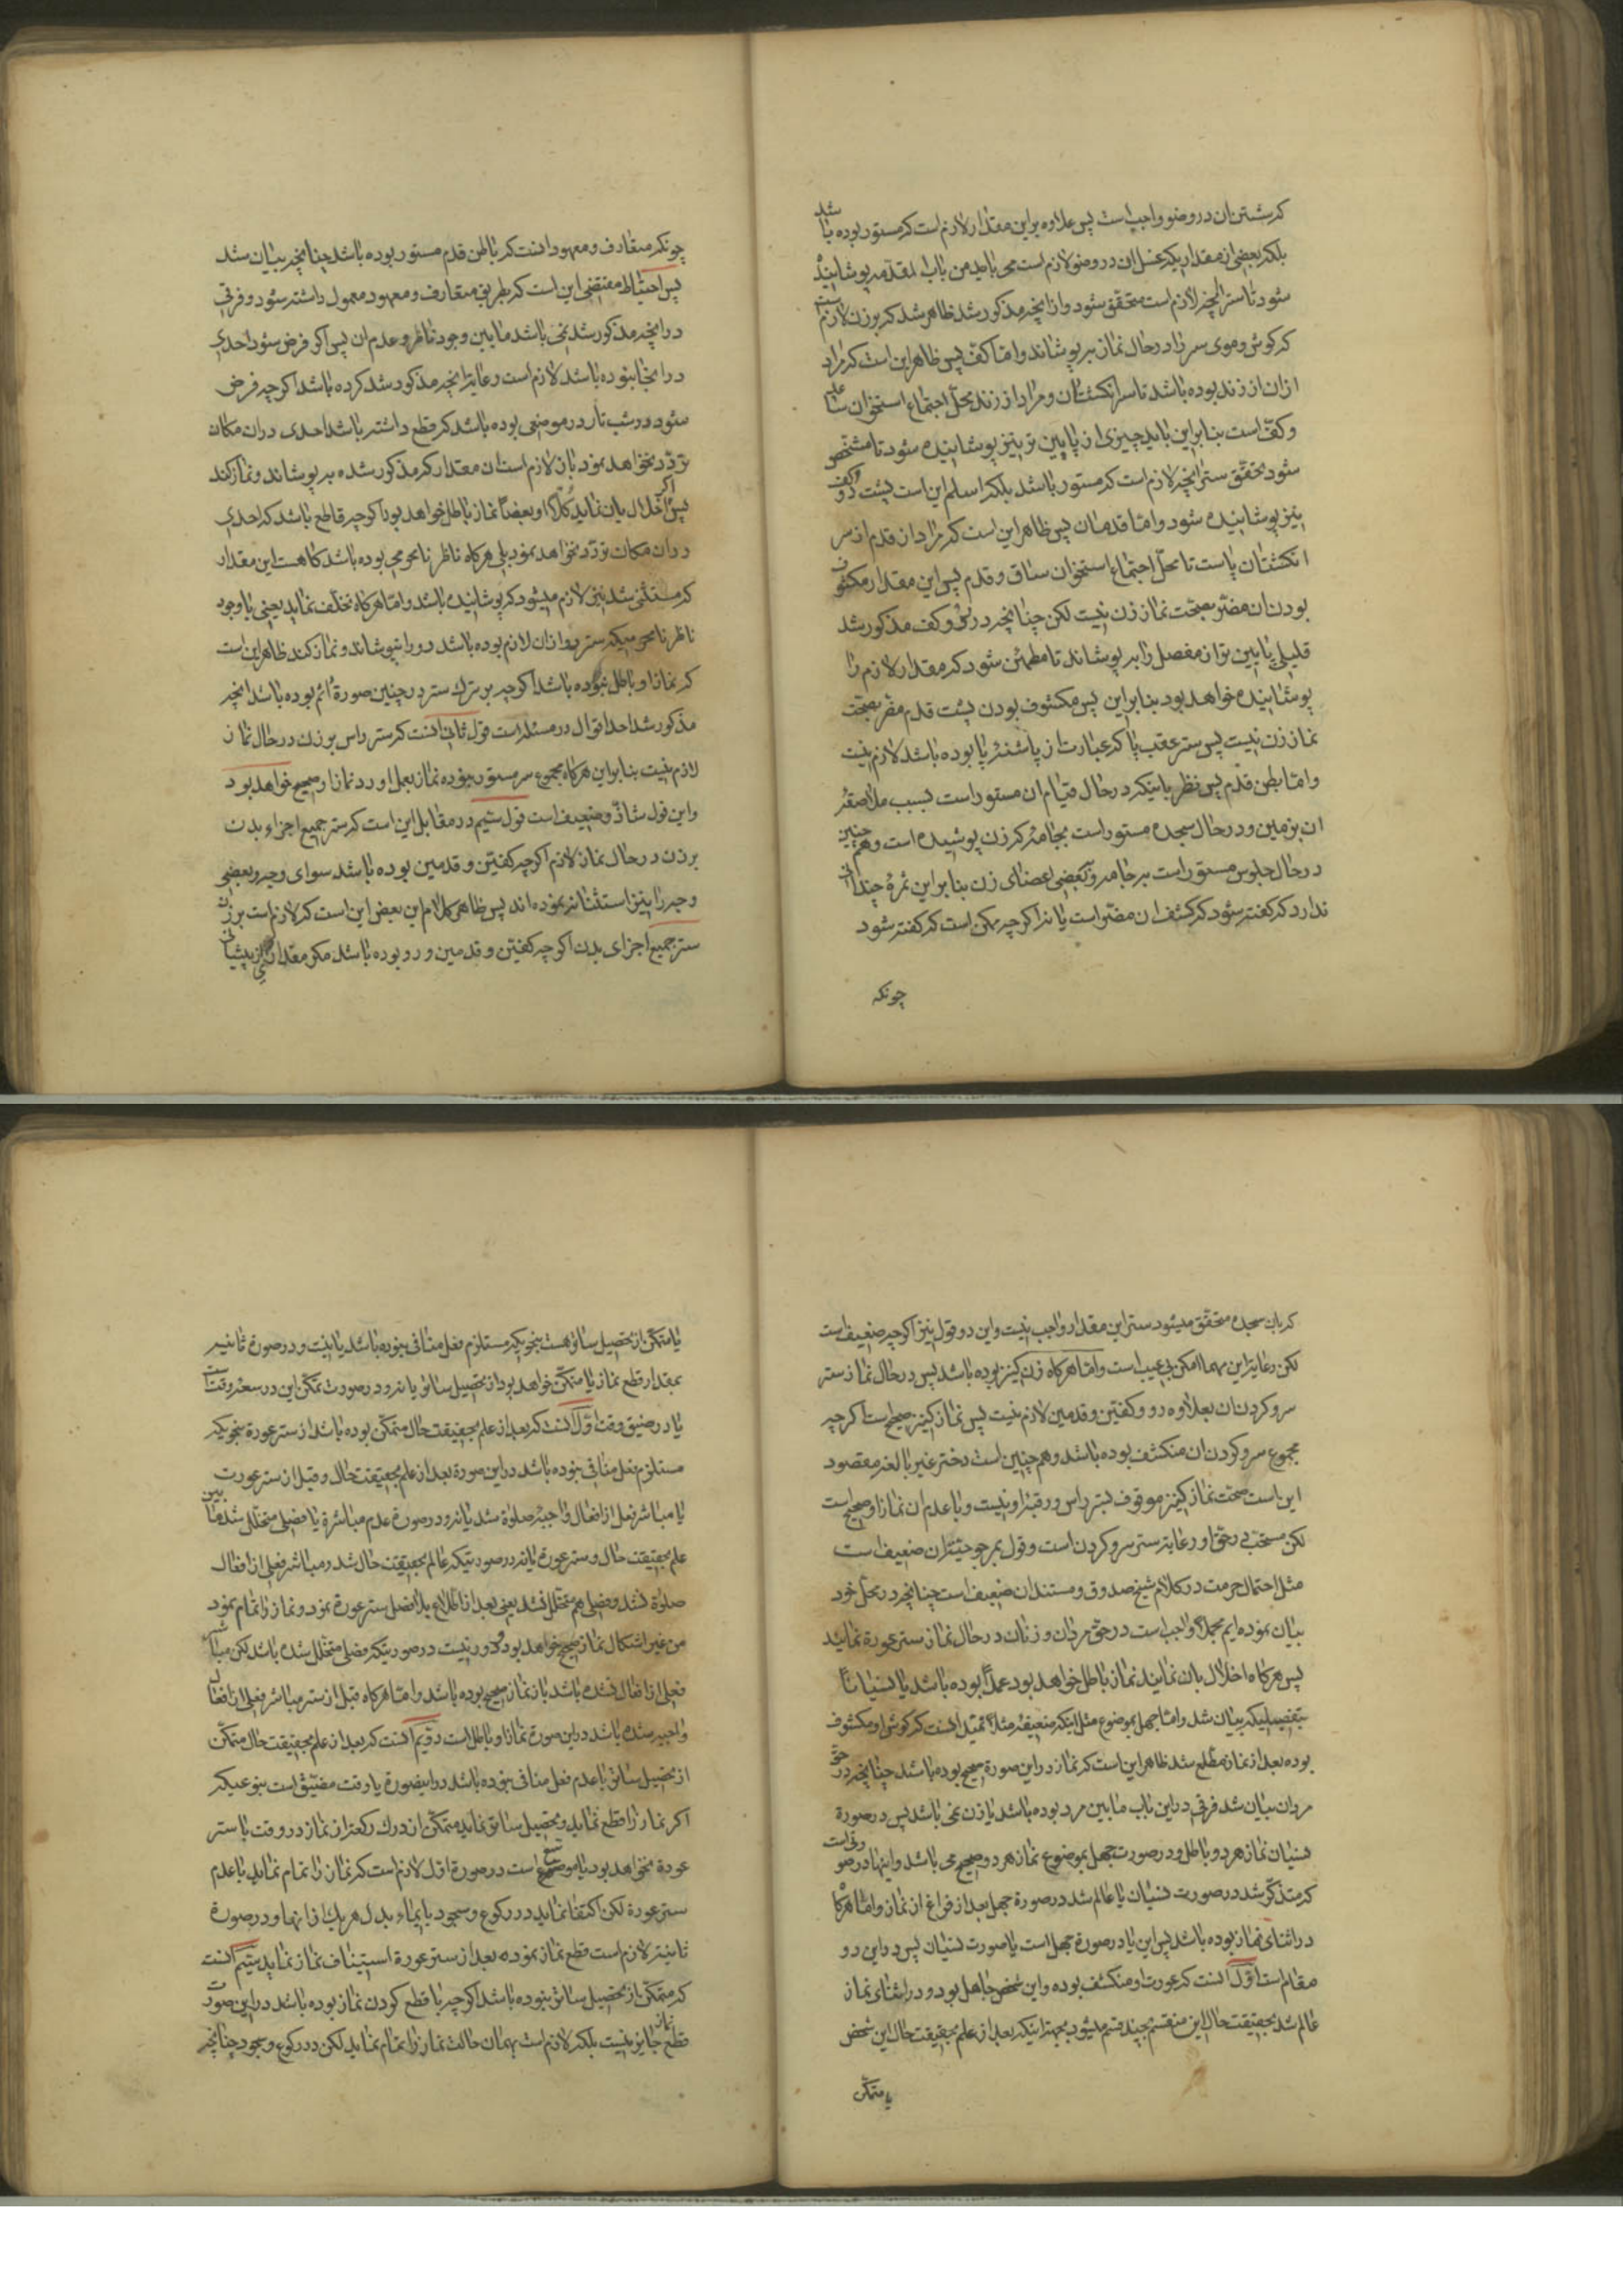 که شستن ان در وضو واجب است پس علاوه بر این مقدار لازم است که مستور بوده باشد
بلکه بعضی از مقداریکه غسل ان در وضو لازم است می باید من باب المقدمه پوشانیده
شود تا ستر انچه لازم است متحقق شود و از انچه مذکور شد ظاهر شد که بر زن لازم است
که کوش و موی سر را در حال نماز بپوشاند و اما کف پس ظاهر این است که مراد
از ان از زند بوده باشد تا سر انکشتان و مراد از زند محل اجتماع استخوان ساعد
و کف است بنابراین باید چیزی از پایین تر نیز پوشانیده شود تا مشخص
شود تحقق ستر انچه لازم است که مستور باشد بلکه اسلم این است پشت دو کف
نیز پوشانیده شود و اما قدمان پس ظاهر این است که مراد از قدم از سر
انکشتان پاست تا محل اجتماع استخوان ساق و قدم پس این مقدار مکشوف
بودن ان مضر بصحت نماز زن نیست لکن چنانچه در رو و کف مذکور شد
قلیلی پایین تر از مفصل را بپوشاند تا مطمئن شود که مقدار لازم را
پوشانیده خواهد بود بنابراین پس مکشوف بودن پشت قدم مضر بصحت
نماز زن نیست پس ستر عقب پا که عبارت از پاشنه پا بوده باشد لازم نیست
و اما بطن قدم پس نظر باینکه در حال قیام ان مستور است بسبب ملاصقه
ان بزمین و در حال سجده مستور است بجامه که زن پوشیده است و همچنین
در حال جلوس مستور است بر جامه و ببعضی اعضای زن بنابراین ثمرۀ چندانی
ندارد که کفته شود که کشف ان مضر است یا نه اکرچه ممکن است که کفته شود
چونکه
چونکه متعارف و معهود انست که باطن قدم مستور بوده باشد چنانچه بیان شد
پس احتیاط مقتضی این است که طریق متعارف و معهود معمول داشته شود و فرقی
در انچه مذکور شد نمی باشد مابین وجود ناظر و عدم ان پس اکر فرض شود احدی
در انجا نبوده باشد لازم است رعایت انچه مذکور شد کرده باشد اکرچه فرض
شود در شب تار در موضعی بوده باشد که قطع داشته باشد احدی در ان مکان
تردد نخواهد نمود باز لازم است ان مقدار که مذکور شده بپوشاند و نماز کند
پس اکر اخلال بان نماید کلا او بعضا نماز باطل خواهد بود اکرچه قاطع باشد که احدی
در ان مکان تردد نخواهد نمود بلی هرکاه ناظر نامحرمی بوده باشد کاهست این مقدار
که مستثنی شد نیز لازم میشود که پوشانیده باشد و اما هرکاه تخلف نماید یعنی با وجود
ناظر نامحرمیکه ستر رو از ان لازم بوده باشد رو را نپوشاند و نماز کند ظاهر این است
که نماز او باطل نبوده باشد اکرچه بر ترک ستر در چنین صورة اثم بوده باشد انچه
مذکور شد احد اقوال در مسئله است قول ثانی انست که ستر راس بر زن در حال نماز
لازم نیست بنابراین هرکاه مجموع سر مستور نبوده نماز بعمل اورد نماز او صحیح خواهد بود
و این قول شاذ و ضعیف است قول سیم در مقابل این است که ستر جمیع اجزاء بدن
بر زن در حال نماز لازم اکرچه کفین و قدمین بوده باشد سوای وجه و بعضی
وجه را نیز استثنا ننموده اند پس ظاهر کلام این بعض این است که لازم است بر زن
ستر جمیع اجزای بدن اکرچه کفین و قدمین و رو بوده باشد مکر مقداری از پیشانی
که بان سجده متحقق میشود ستر این مقدار واجب نیست و این دو قول نیز اکرچه ضعیف است
لکن رعایت این مهما امکن بی عیب است و اما هرکاه زن کنیز بوده باشد پس در حال نماز ستر
سر و کردن ان بعلاوه رو و کفین و قدمین لازم نیست پس نماز کنیز صحیح است اکرچه
مجموع سر و کردن ان منکشف بوده باشد و هم چنین است دختر غیر بالغه مقصود
این است صحت نماز کنیز موقوف بستر راس و رقبه او نیست و با عدم ان نماز او صحیح است
لکن مستحب در حق او رعایت ستر سر و کردن است و قول بمرجوحیت ان ضعیف است
مثل احتمال حرمت در کلام شیخ صدوق و مستند ان ضعیف است چنانچه در محل خود
بیان نموده ایم مجملا واجب است در حق مردان و زنان در حال نماز ستر عورة نمایند
پس هرکاه اخلال بان نمایند نماز باطل خواهد بود عمدا بوده باشد یا نسیانا
بتفصیلیکه بیان شد و اما جهل بموضوع مثل اینکه ضعیفه مثلا تخیل انست که کوش او مکشوف
بوده بعد از نماز مطلع شد ظاهر این است که نماز در این صورة صحیح بوده باشد چنانچه در حق
مردان بیان شد فرقی در این باب مابین مرد بوده باشد یا زن نمی باشد پس در صورة
نسیان نماز هر دو باطل و در صورت جهل بموضوع نماز هر دو صحیح می باشد و اینها در صورتی است
که متذکر شد در صورت نسیان یا عالم شد در صورة جهل بعد از فراغ از نماز و اما هرکاه
در اثنای نماز بوده باشد پس این یا در صورة جهل است یا صورت نسیان پس در این دو
مقام است اول انست که عورت او منکشف بوده و این شخص جاهل بود و در اثنای نماز
عالم شد بحقیقت حال این منقسم بچند قسم میشود بجهة اینکه بعد از علم بحقیقت حال این شخص
یا متمکن
یا متمکن از تحصیل ساتر هست بنحویکه مستلزم فعل منافی نبوده باشد یا نیست و در صورة ثانیه
بمقدار قطع نماز یا متمکن خواهد بود از تحصیل ساتر یا نه و در صورت تمکن این در سعه وقت است
یا در ضیق وقت اول انست که بعد از علم بحقیقت حال متمکن بوده باشد از ستر عورة بنحویکه
مستلزم فعل منافی نبوده باشد در این صورة بعد از علم بحقیقت حال و قبل از ستر عورت
یا مباشر فعل از افعال واجبۀ صلوة شد یا نه و در صورة عدم مباشرة یا فصلی متخلل شد مابین
علم بحقیقت حال و ستر عورة یا نه در صورتیکه عالم بحقیقت حال شد و مباشر فعلی از افعال
صلوة نشد و فصلی هم متخلل نشد یعنی بعد از اطلاع بلا فصل ستر عورة نمود و نماز را تمام نمود
من غیر اشکال نماز صحیح خواهد بود و دور نیست در صورتیکه فصلی متخلل شده باشد لکن مباشر
فعلی از افعال نشده باشد باز نماز صحیح بوده باشد و اما هرکاه قبل از ستر مباشر فعلی از افعال
واجبه شده باشد در این صورة نماز او باطل است دویم انست که بعد از علم بحقیقت حال متمکن
از تحصیل ساتر با عدم فعل منافی نبوده باشد در اینصورة یا وقت مضیق است بنوعیکه
اکر نماز را قطع نماید و تحصیل ساتر نماید متمکن از درک رکعة از نماز در وقت با ستر
عورة نخواهد بود یا موسع است در صورة اول لازم است که نماز را تمام نماید با عدم
ستر عورة لکن اکتفا نماید در رکوع و سجود بایماء بدل هر یک از انها و در صورة
ثانیه لازم است قطع نماز نموده بعد از ستر عورة استیناف نماز نماید سیم انست
که متمکن از تحصیل ساتر نبوده باشد اکرچه با قطع کردن نماز بوده باشد در این صورت
قطع نماز جایز نیست بلکه لازم است بهمان حالت نماز را تمام نماید لکن در رکوع و سجود چنانچه